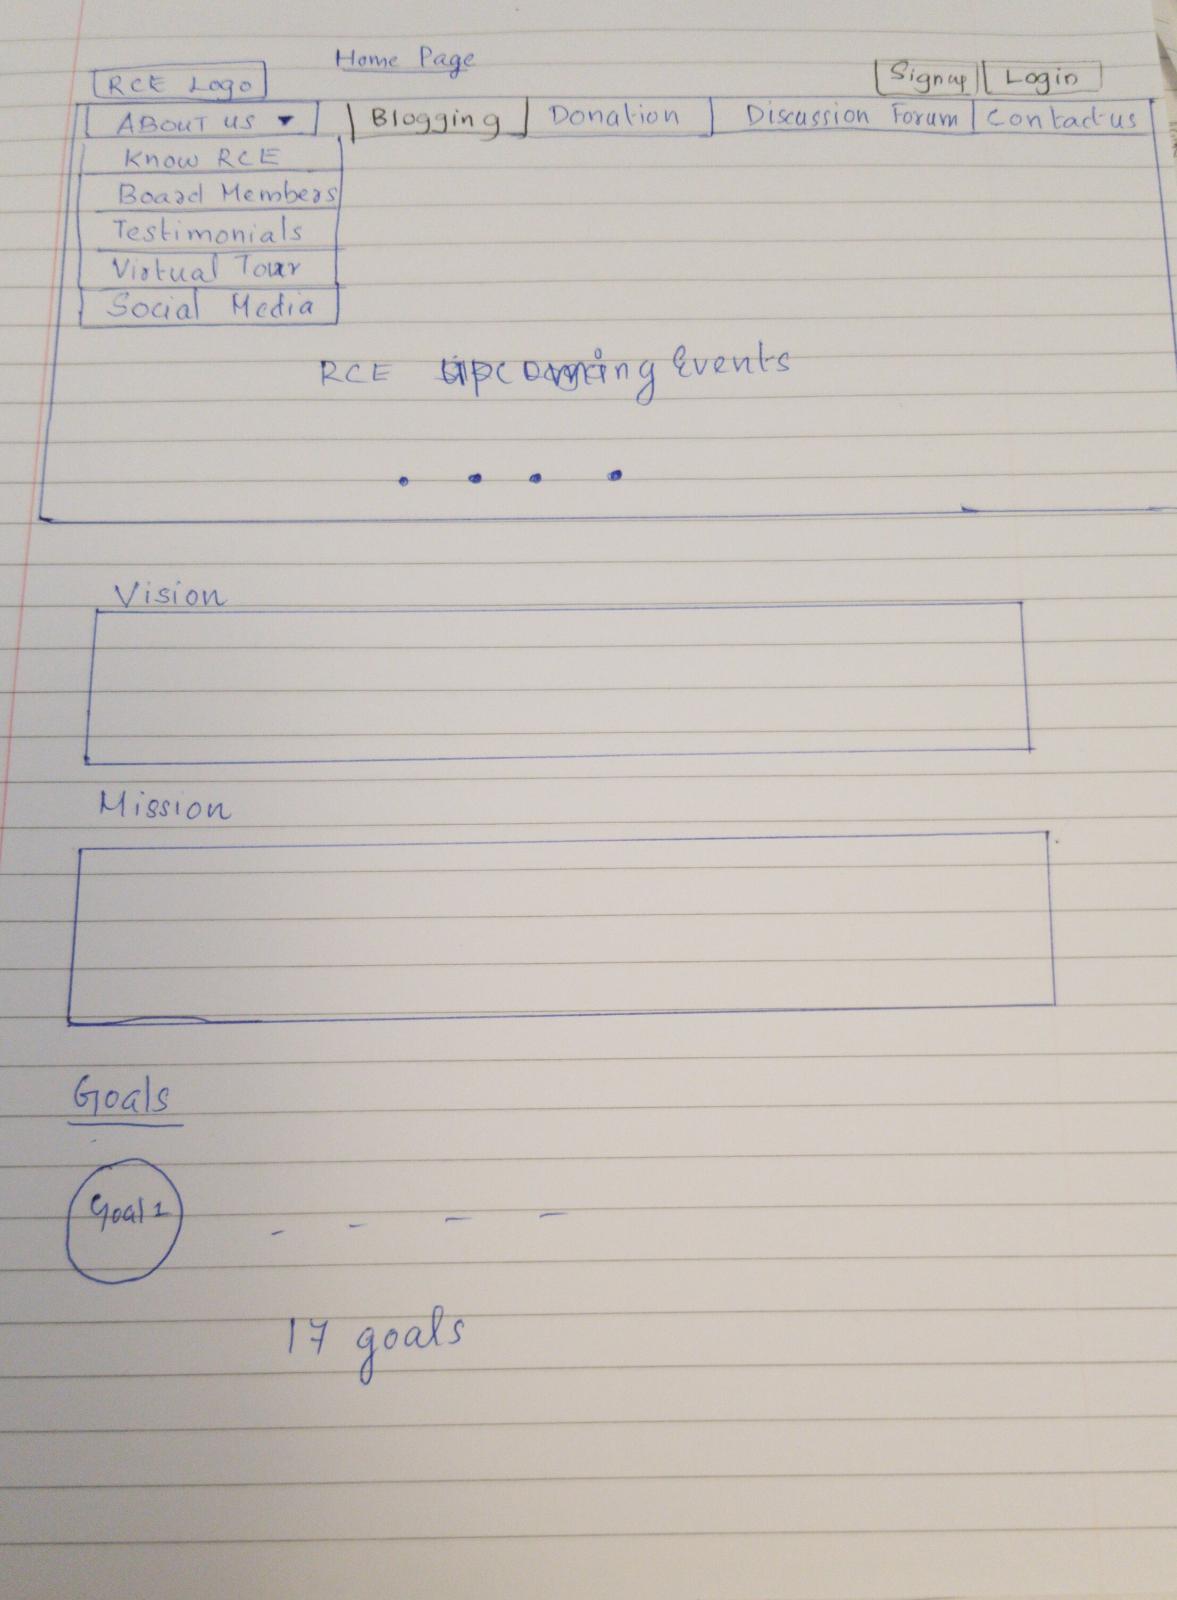 Home Page
RCE Logo
Signup Login
ABOUT US Blogging Donation Discussion Forum Contact us
Know RCE
Board Members
Testimonials
Virtual Tour
Social Media
RCE Upcoming Events
Vision
Mission
Goals
Goal 1
17 goals